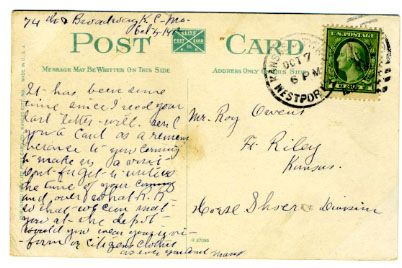 74 Broadway K C - Mo
Oct 7
POST CARD
MESSAGE MAY BE WRITTEN ON THIS SIDE
ADDRESS ONLY ON THIS SIDE
It has been some
time since I rec'd your
last letter - will send
you a Card as a remem
berance to you coming
to make us a visit
don't forget to write us
the time of your coming
and over what R. R.
so that we can meet
you at the depot -
would you wear your uni-
form or Citizens clothes
OCT 7
6 PM
WESTPORT
U.S. POSTAGE
Mr. Roy Owens
Ft. Riley
Kansas.
Horse Shoer Division